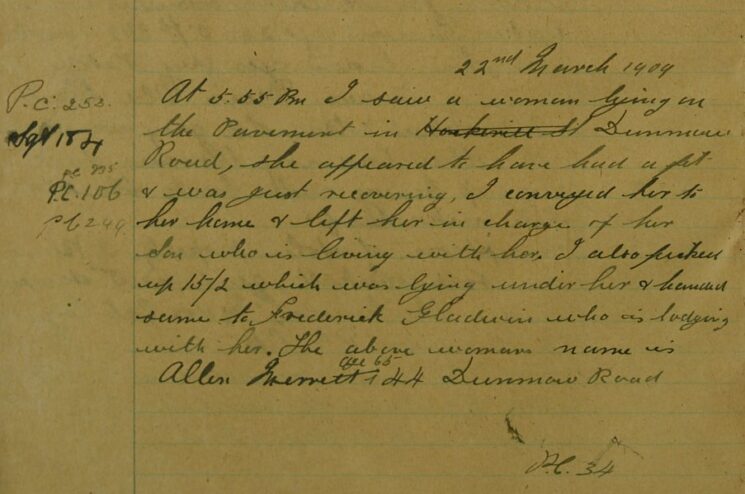 22nd March 1909
P.C. 252.
At 5.55 Pm I saw a woman lying on
Sgt 18
the Pavement in Hockerill St Dunmow
Road, she appeared to have had a fit
P.C. 106
& was just recovering, I conveyed her to
her home & left her in charge of her
Son who is living with her. I also picked
up 15/2 which was lying under her & handed
same to Frederick Gladwin who is lodging
with her. The above womans name is
age 65
Allen Merrett 44 Dunmow Road
P.C. 34